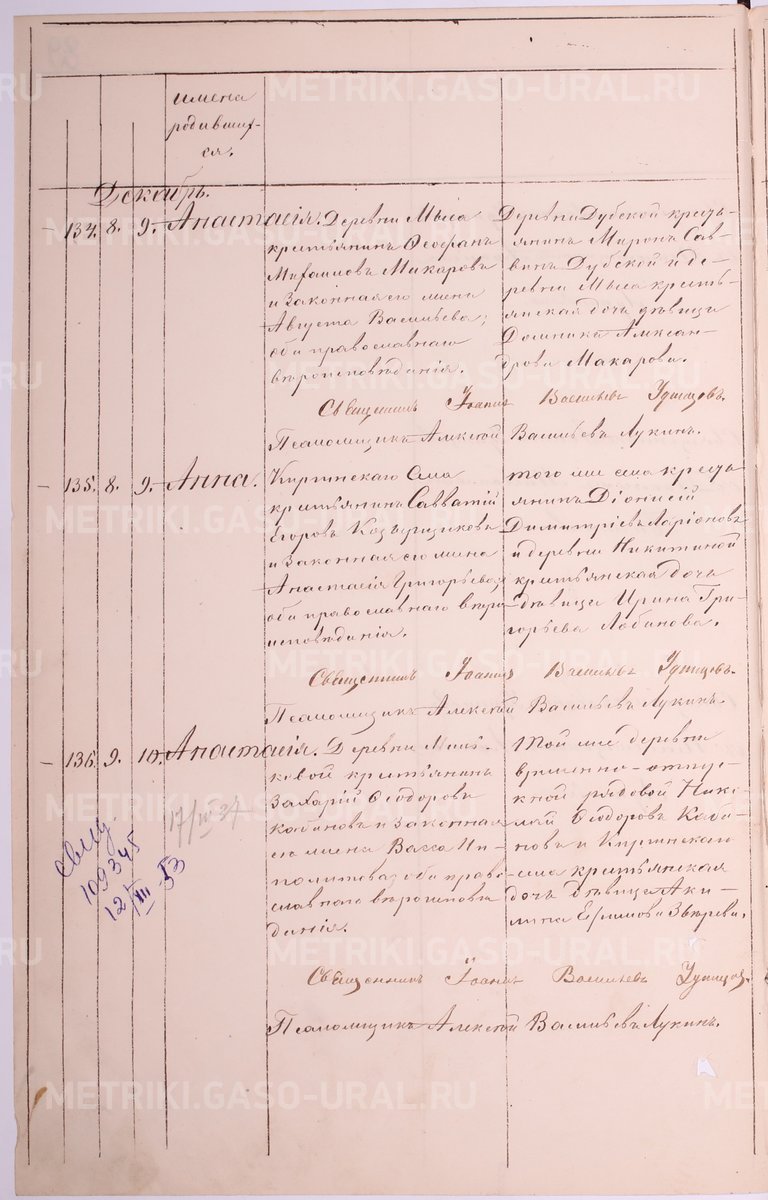 имена
родивших-
ся.
Декабрь.
134. 8. 9. Анастасія. Деревни Мыса
крестьянинъ Ѳеофанъ
Михаиловъ Макаровъ
и законная его жена
Августа Васильева;
оба православнаго
вѣроисповѣданія.
Деревни Дубской кресть-
янинъ Миронъ Сав-
винъ Дубской и де-
ревни Мыса кресть-
янская дочь дѣвица
Домника Алексан-
дрова Макарова.
Священникъ Іоаннъ Васильевъ Удинцовъ.
Псаломщикъ Алексѣй Васильевъ Лукинъ.
135. 8. 9. Анна. Киргинскаго села
крестьянинъ Савватій
Егоровъ
и законная его жена
Анастасія Григорьева;
оба православнаго вѣро-
исповѣданія.
того же села кресть
янинъ Діонисій
Димитріевъ Ларіоновъ
и деревни Никитиной
крестьянская дочь
дѣвица Ирина Гри-
горьева Лобанова.
Священникъ Іоаннъ Васильевъ Удинцевъ.
Псаломщикъ Алексѣй Васильевъ Лукинъ.
136. 9. 10. Анастасія. Деревни
ковой крестьянинъ
Захарій Ѳеодоровъ
Кабановъ и законная
его жена Васса Ип-
политова; оба право-
славнаго вѣроисповѣ
данія.
Той же деревни
временно-отпус-
кной рядовой Нико-
лай Ѳеодоровъ Каба-
новъ и Киргинскаго
села крестьянская
дочь дѣвица Аки-
лина Ефимова Звѣрева.
17/IV 37
Свид.
109345
12/XII 53
Священникъ Іоаннъ Васильевъ Удинцов.
Псаломщикъ Алексѣй Васильевъ Лукинъ.
METRIKI.GASO-URAL.RU